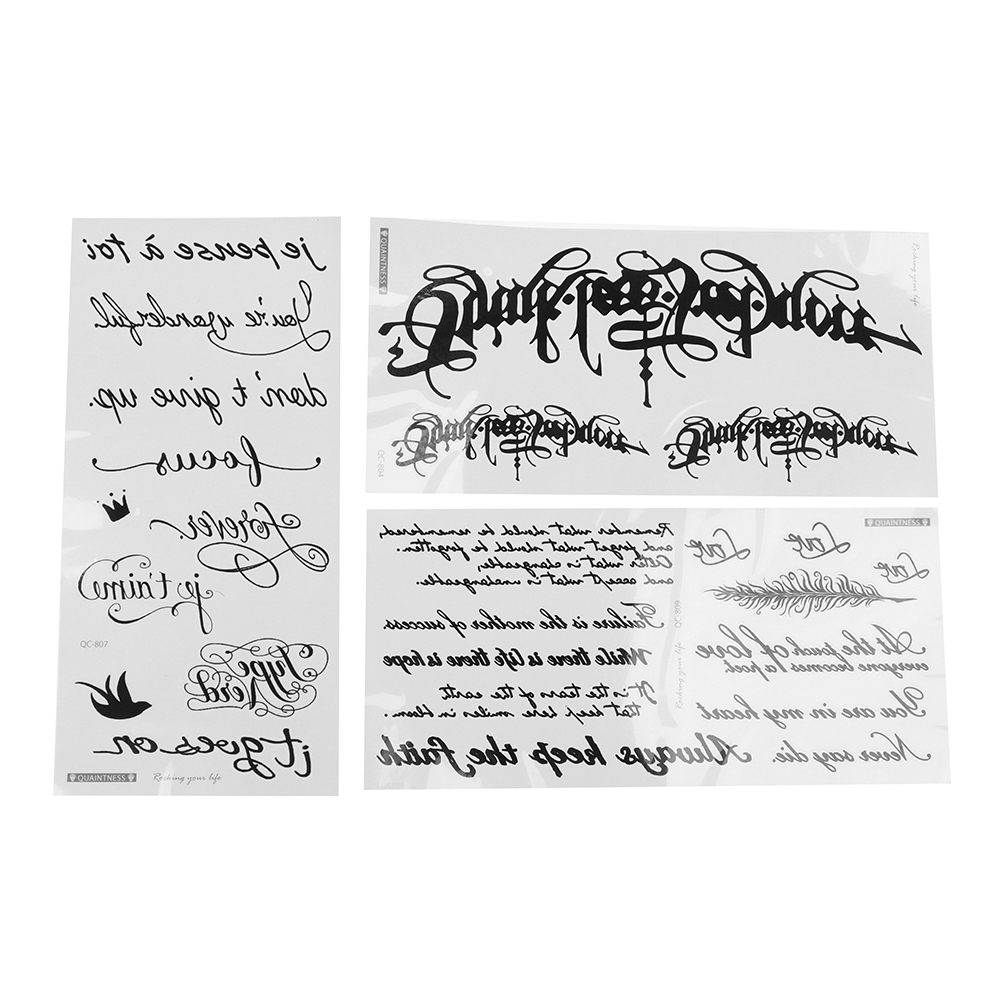 je pense à toi
You're wonderful.
don't give up.
focus
forever.
je t'aime
QC-807
Type
Nerd
it goes on
QUAINTNESS
Rocking your life
QUAINTNESS
Rocking your life
QC-804
Remember what should be remembered,
and forget what should be forgotten.
Alter what is changeable,
and accept what is unchangeable.
Failure is the mother of success.
While there is life there is hope
It is the tears of the earth
that keep here smiles in bloom.
Always keep the faith
QC-809
Rocking your life
QUAINTNESS
Love
Love
Love
At the touch of love
everyone becomes a poet
You are in my heart
Never say die.